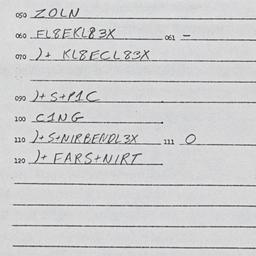 050 ZOLN
060 EL8EKL83X 061 -
070 )+ KL8ECL83X
090 )+S+P1C
100 C1NG
110 )+S+NIRBENDL3X 111 O
120 )+ FARS+NIRT